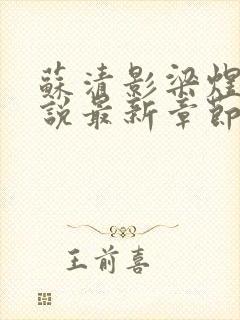 蘇清影梁煜
說最新章節
王前喜